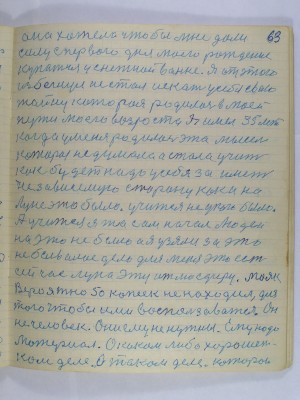 она хотела чтобы мне дали 63
силу с первого дня моего рождения
купатся у снежной ванне. Я от этого
не стал искать у себя свою
тайну которая родилась в моей
пути моего возроста. Я имел 35 лет
когда у меня родилась эта мысль
которая не думала а стала учить
как будет надо у себя за иметь
независимую сторону как на
Луне это было. учится не у кого было.
А учится я та сам начал людей
на это не было а я узял за это
небывалое дело для меня это есть
сей час луна эту атмосферу. Маяк
Вероятно 50 копеек не находил, для
того чтобы ими воспользоватся. Он
не человек. Они ему не нужны. Ему надо
Материал. О каком либо хорошен-
ком деле. О таком деле. которое